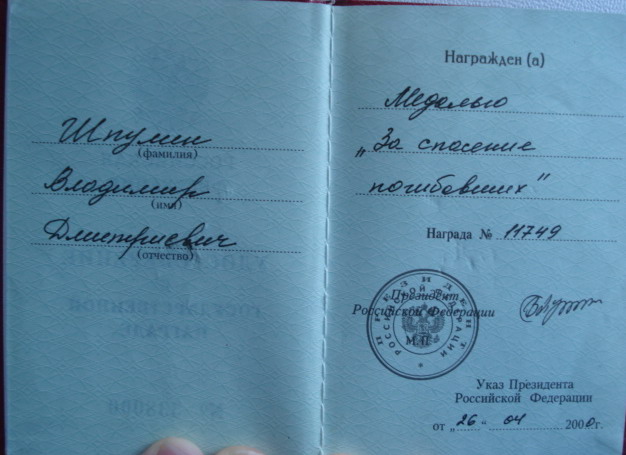 Шпулин
(фамилия)
Владимир
(имя)
Дмитриевич
(отчество)
Награжден (а)
Медалью
„За спасение
погибавших"
Награда № 11749
Президент
Российской Федерации
М.П.
ПРЕЗИДЕНТ
РОССИЙСКОЙ ФЕДЕРАЦИИ
Указ Президента
Российской Федерации
от „26" 04 2000г.